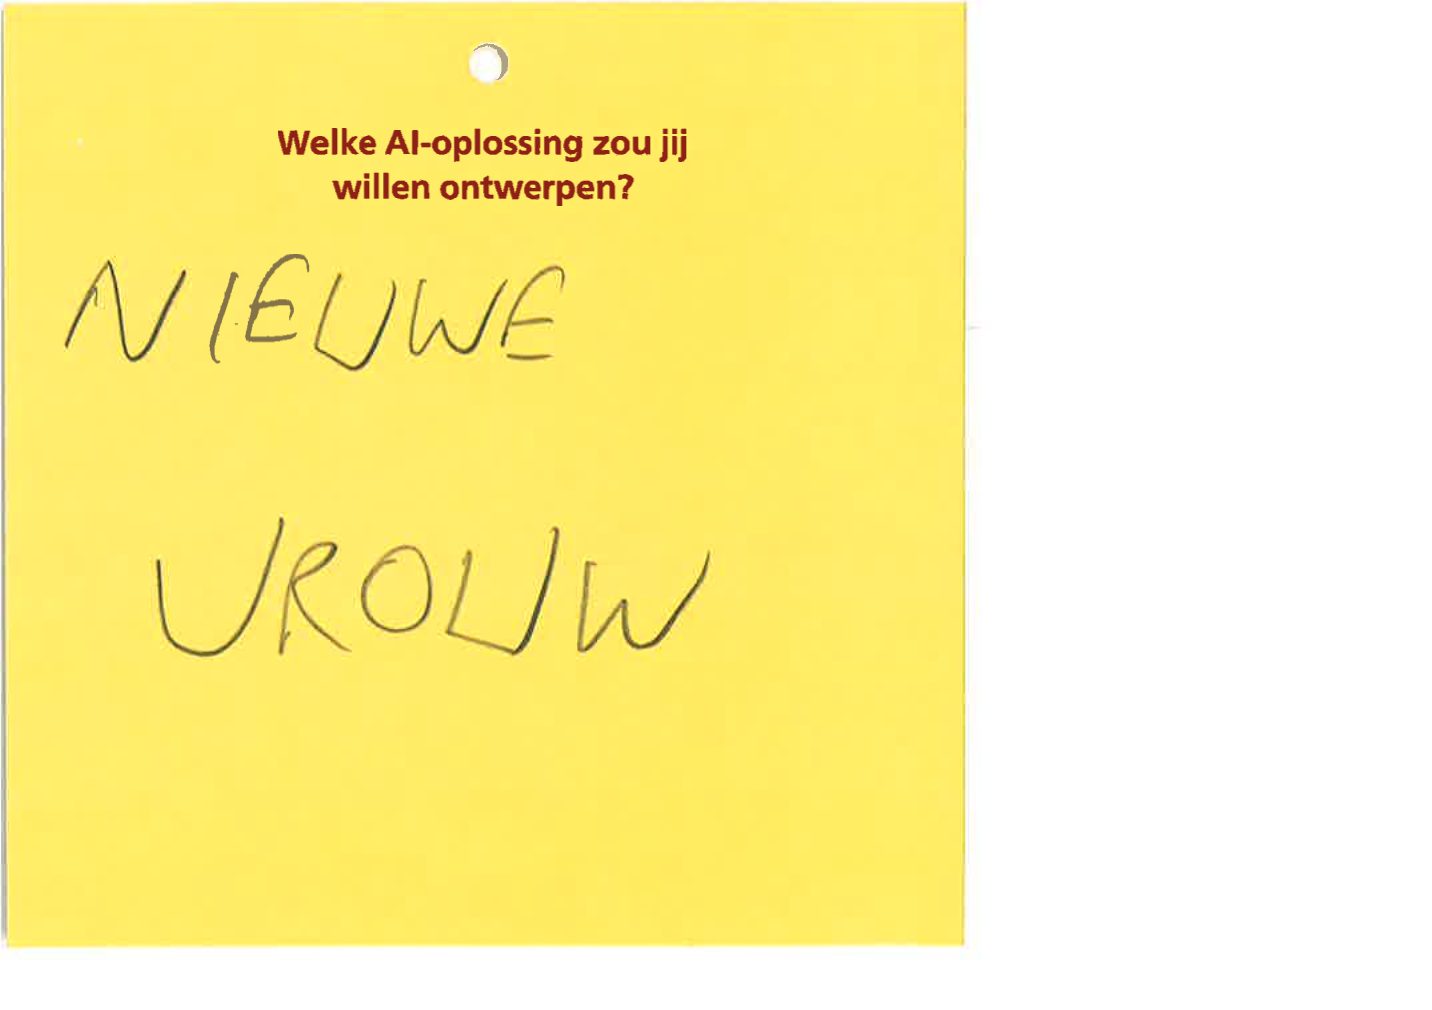 Welke AI-oplossing zou jij
willen ontwerpen?
NIEUWE
VROUW